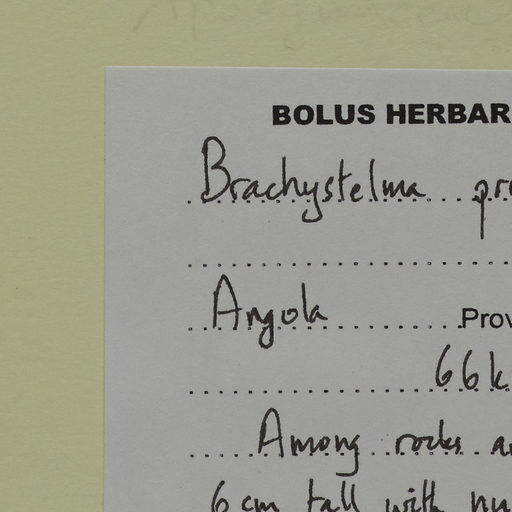 BOLUS HERBAR
Brachystelma pr
Angola Prov
66 k
Among rocks a
6 cm tall with nu